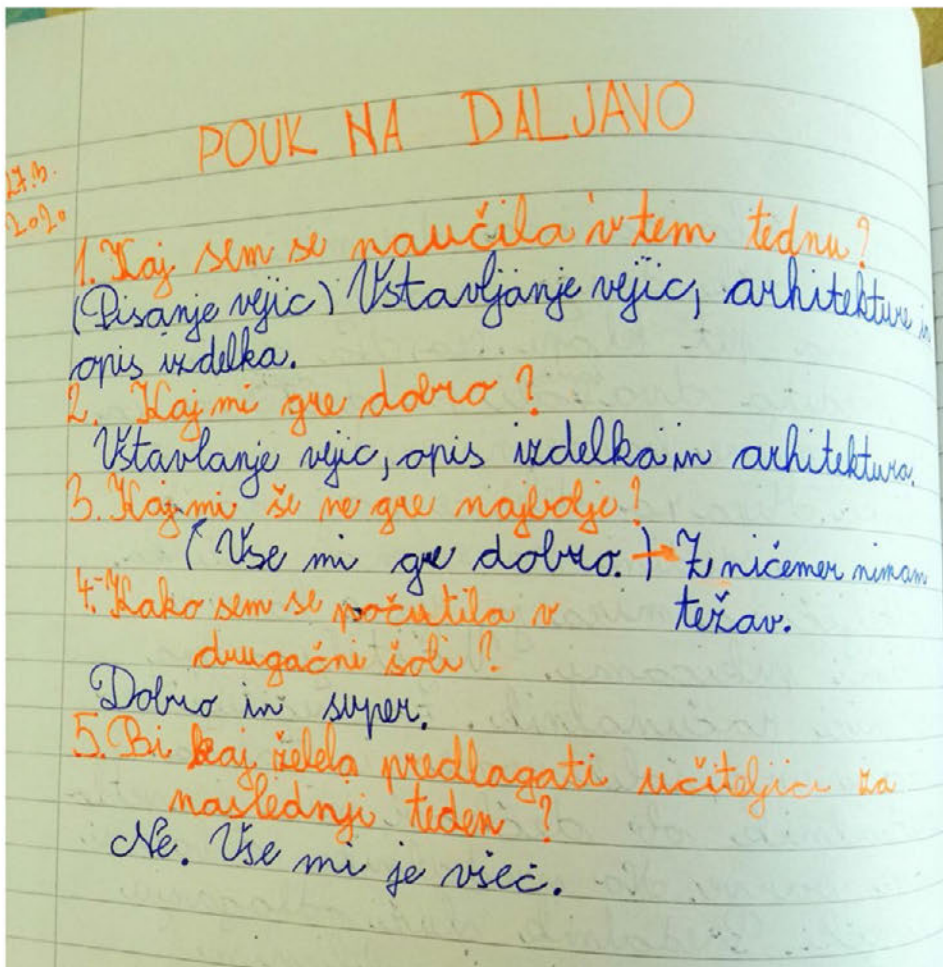 POUK NA DALJAVO
27.3.
2020
1. Kaj sem se naučila v tem tednu?
(Pisanje vejic) Vstavljanje vejic, arhitekture in
opis izdelka.
2. Kaj mi gre dobro?
Vstavlanje vejic, opis izdelka in arhitektura.
3. Kaj mi še ne gre najbolje?
(Vse mi gre dobro.) → Z ničemer nimam
težav.
4. Kako sem se počutila v
drugačni šoli?
Dobro in super.
5. Bi kaj želela predlagati učiteljici za
naslednji teden?
Ne. Vse mi je všeč.